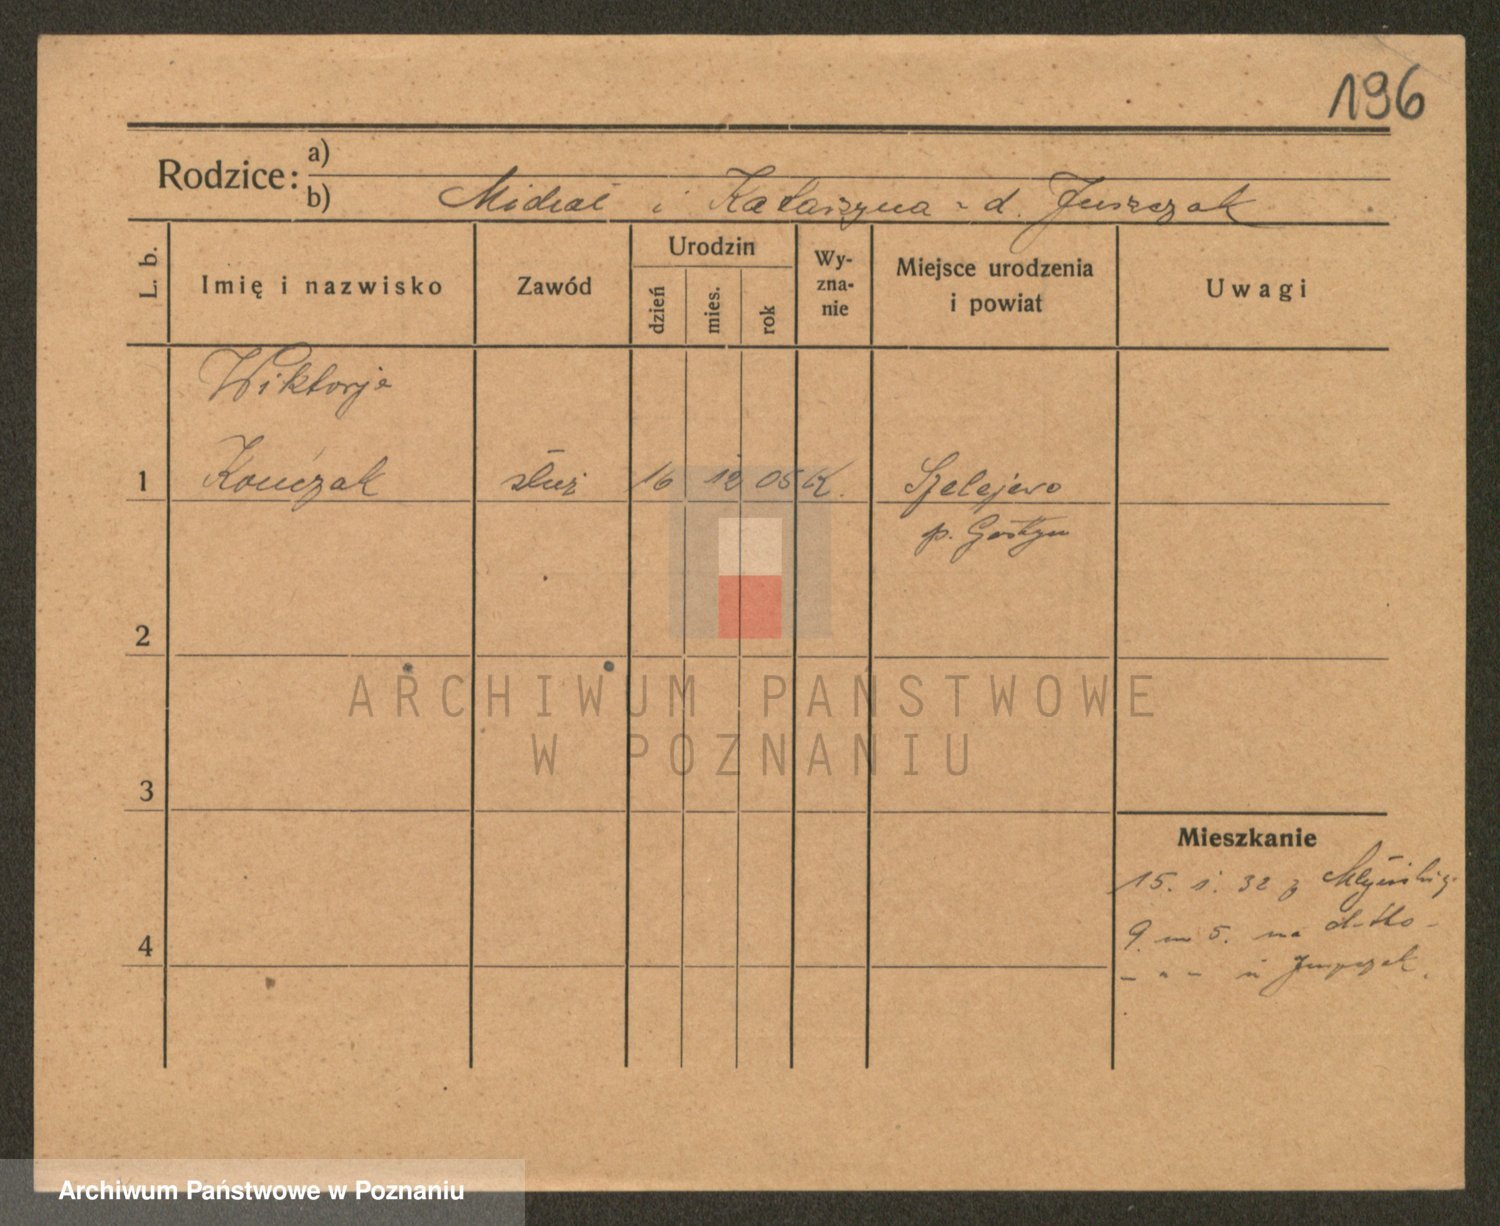 196
Rodzice: a)
b) Michał i Katarzyna z d. Juszczak
L. b.
Imię i nazwisko
Zawód
Urodzin
dzień
mies.
rok
Wy-
zna-
nie
Miejsce urodzenia
i powiat
Uwagi
Wiktorja
1 Kończak służ 16 12 05 K. Szelejewo
p. Gostyń
2
3
4
Mieszkanie
15. 1. 32 z
9 m 5. na
Juszczak
ARCHIWUM PAŃSTWOWE
W POZNANIU
Archiwum Państwowe w Poznaniu